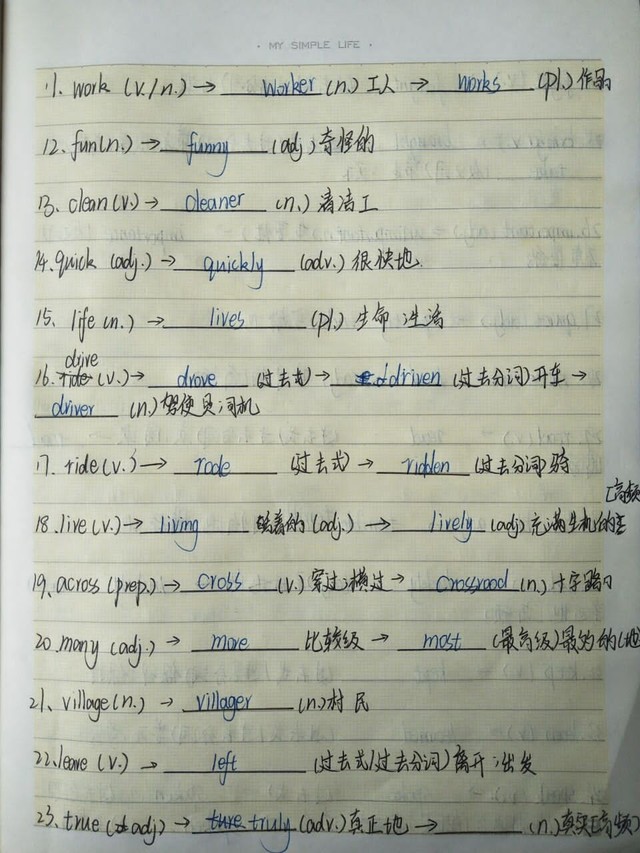 · MY SIMPLE LIFE ·
11. work (v./n.) → worker (n.) 工人 → works (pl.) 作品
12. fun(n.) → funny (adj.) 奇怪的
13. clean(v.) → cleaner (n.) 清洁工
14. quick (adj.) → quickly (adv.) 很快地
15. life (n.) → lives (pl.) 生命;生活
drive
16. ride (v.) → drove (过去式) → driven (过去分词) 开车 →
driver (n.) 驾使员司机
17. ride (v.) → rode (过去式) → ridden (过去分词) 骑
[高频
18. live (v.) → living 活着的 (adj.) → lively (adj) 充满生机的
19. across (prep.) → cross (v.) 穿过;横过 → crossroad (n.) 十字路口
20. many (adj.) → more 比较级 → most (最高级) 最多的(地
21. village (n.) → villager (n.) 村民
22. leave (v.) → left (过去式/过去分词) 离开;出发
23. true (adj) → ture truly (adv.) 真正地 → (n.) 真实[高频]